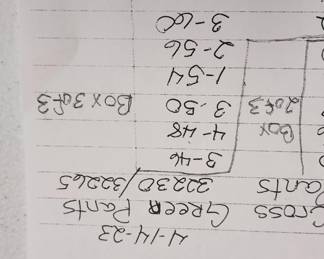 4-14-23
Cross Green Pants
ants 32230/32265
3-46
Box 4-48
2 of 3 3-50 Box 3 of 3
1-54
2-56
3-60